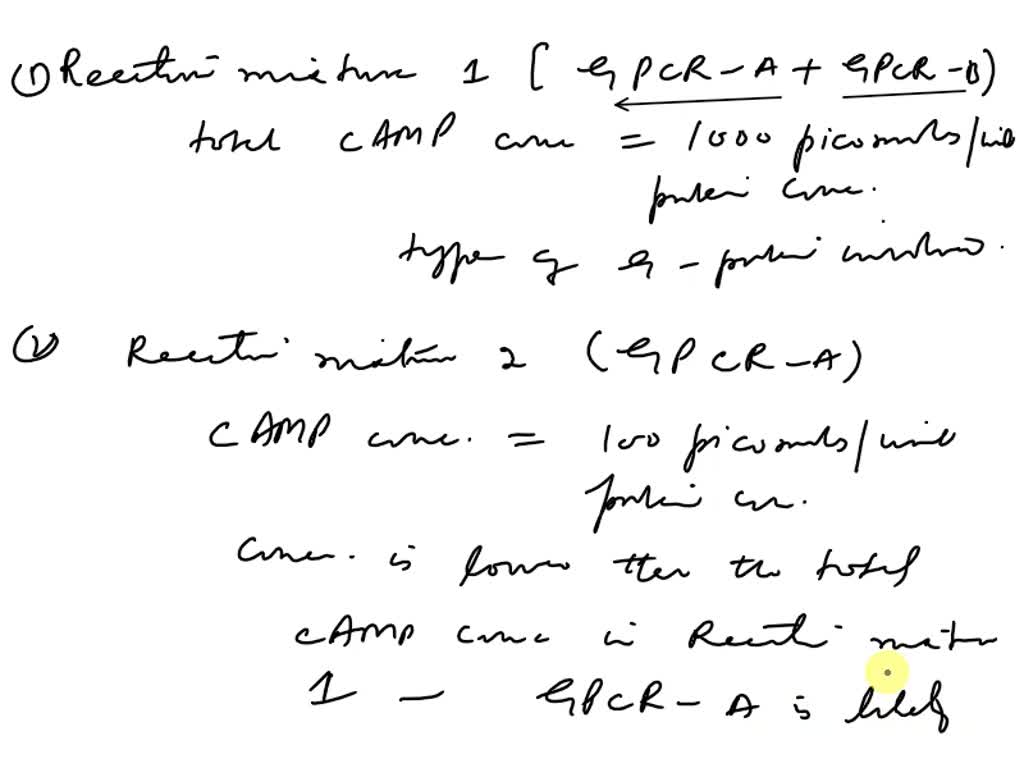 ① Reaction mixture 1 [ GPCR-A + GPCR-B)
total cAMP conc = 1000 picomols/unit
protein conc.
type of G-protein involved.
② Reaction mixture 2 (GPCR-A)
cAMP conc. = 100 picomols/unit
protein con.
Conc. is lower then the total
cAMP conc in Reaction mixture
1 - GPCR-A is likely